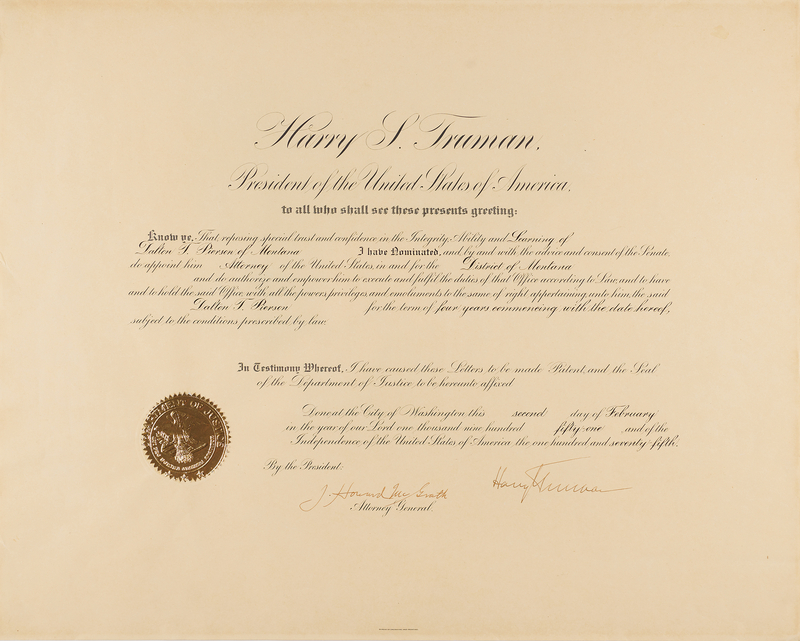 Harry S. Truman,
President of the United States of America,
to all who shall see these presents greeting:
Know ye, That, reposing special trust and confidence in the Integrity, Ability and Learning of
Dalton T. Pierson of Montana I have Nominated, and, by and with the advice and consent of the Senate,
do appoint him Attorney of the United States, in and for the District of Montana
and do authorize and empower him to execute and fulfil the duties of that Office according to Law, and to have
and to hold the said Office, with all the powers, privileges, and emoluments to the same of right appertaining, unto him, the said
Dalton T. Pierson for the term of four years commencing with the date hereof,
subject to the conditions prescribed by law.
In Testimony Whereof, I have caused these Letters to be made Patent, and the Seal
of the Department of Justice to be hereunto affixed
Done at the City of Washington this second day of February
in the year of our Lord one thousand nine hundred fifty-one and of the
Independence of the United States of America the one hundred and seventy-fifth.
By the President:
J. Howard McGrath
Harry Truman
Attorney General.